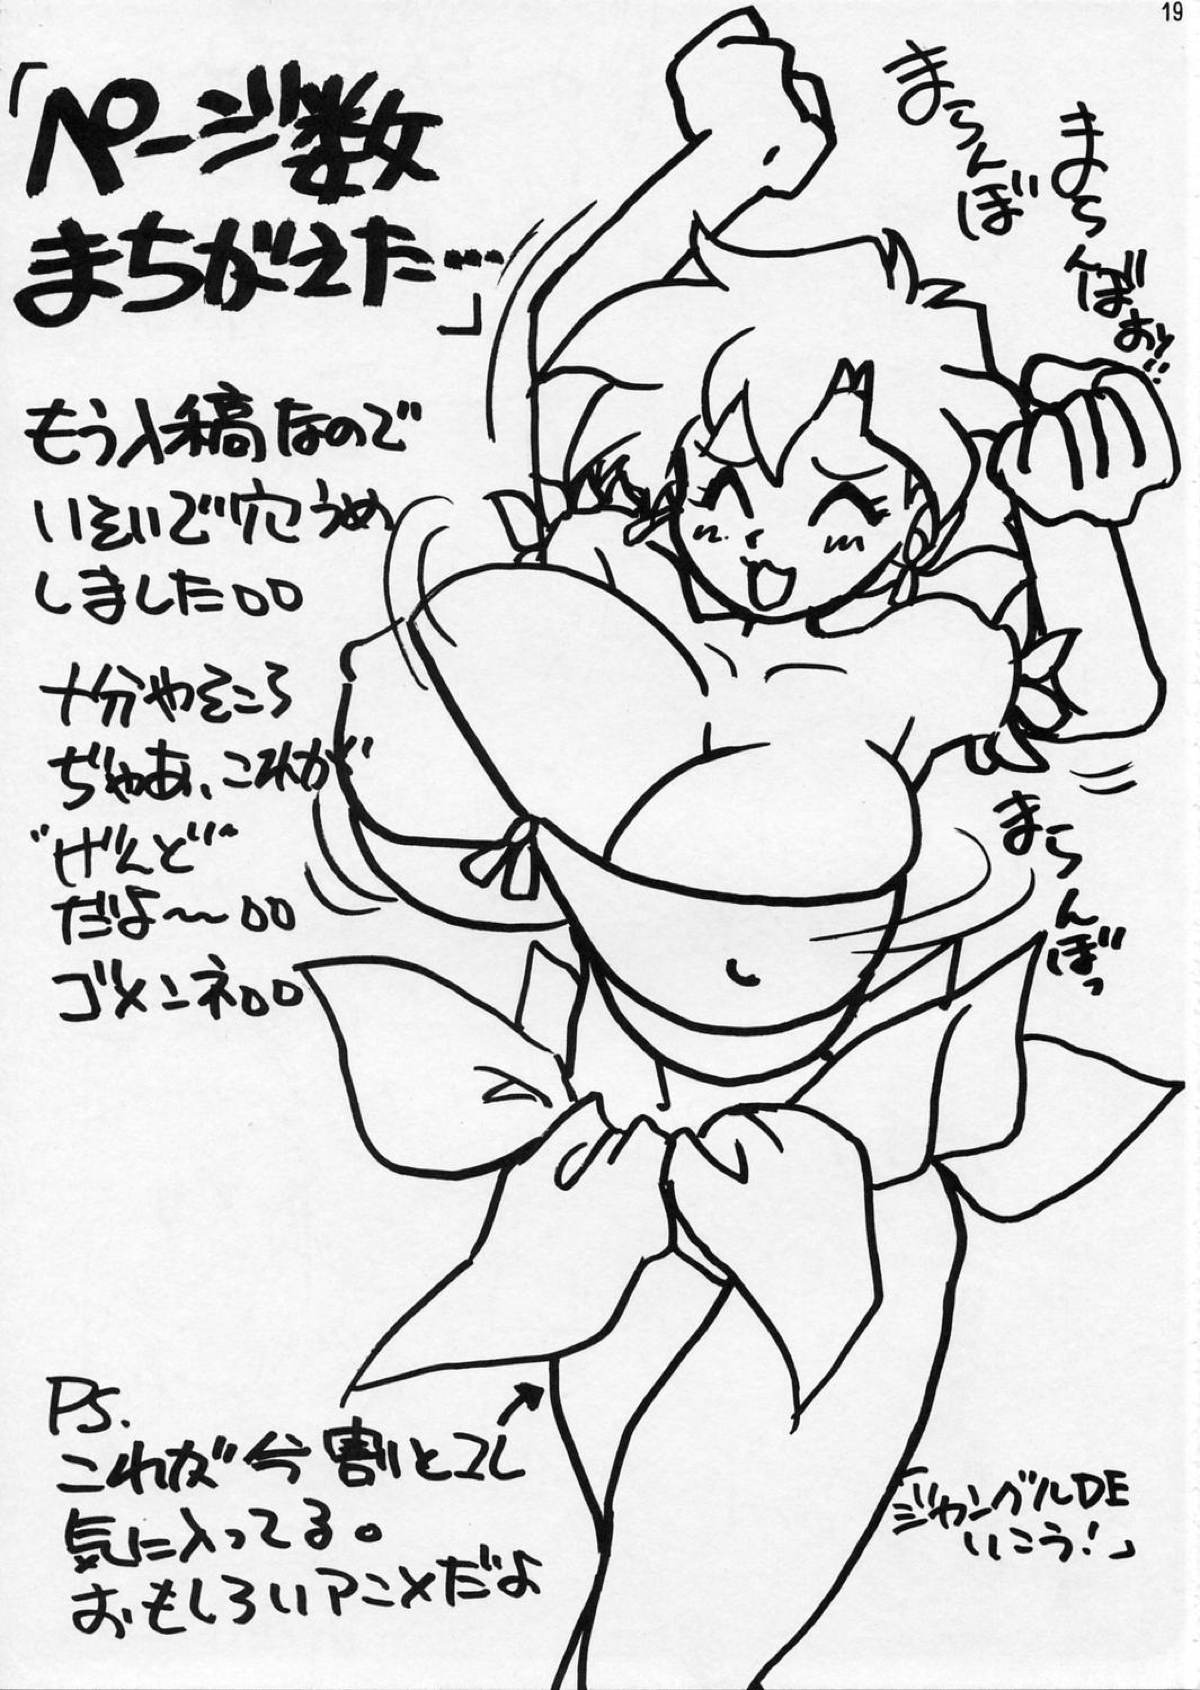 19
「ページ数
まちがえた…」
もう入稿なので
いそいで穴うめ
しました○○
十分やそころ
ぢゃあ、これが
"げんど"
だよ〜○○
ゴメンネ○○
まらんぼ
まらんぼぉッ!!
まらんぼっ
PS.
これが今割とコレ
気に入ってる。
おもしろいアニメだよ
「ジャングルDE
いこう!」